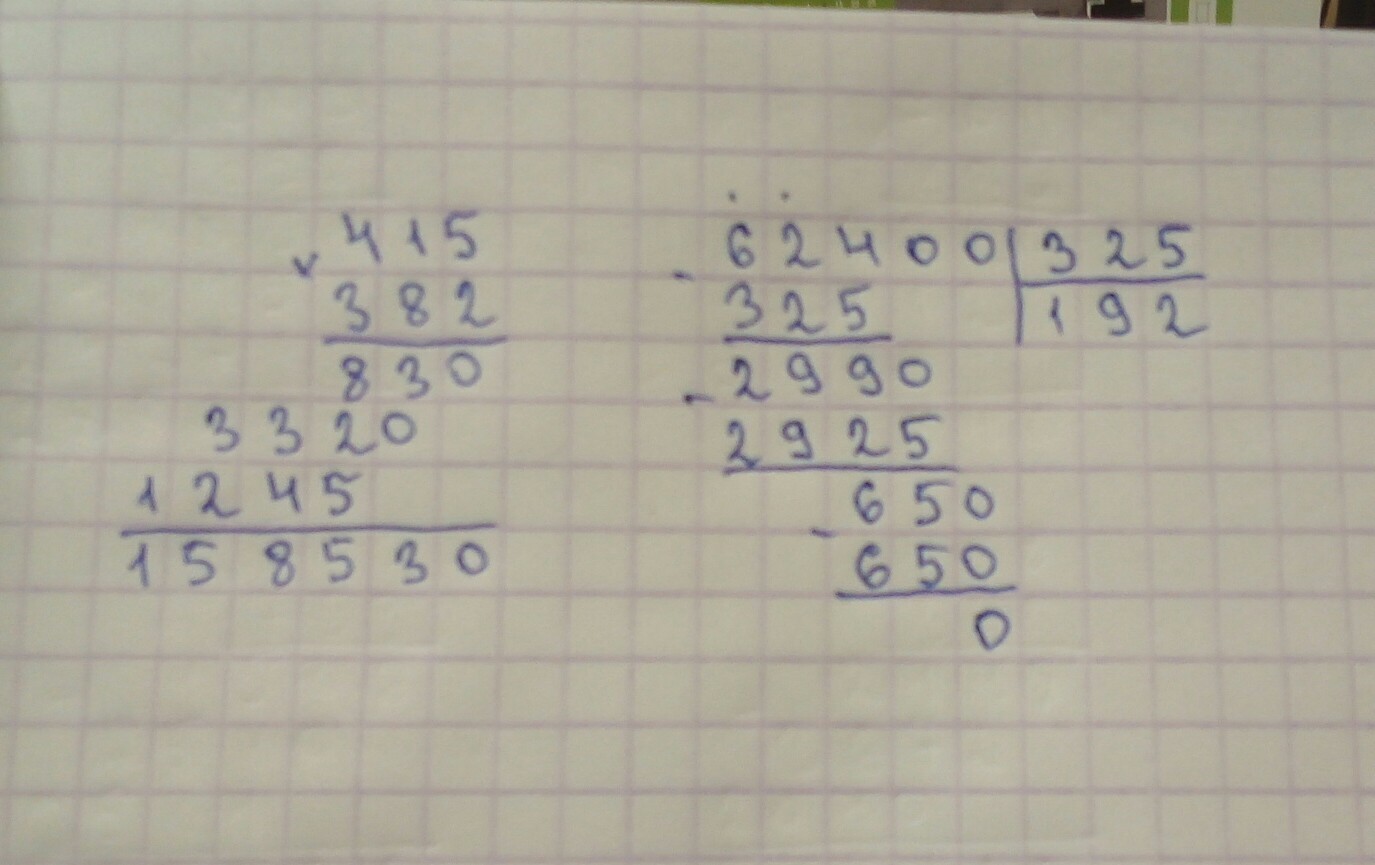 415
× 382
830
3320
1245
158530
- 62400 | 325
325 | 192
- 2990
2925
- 650
650
0